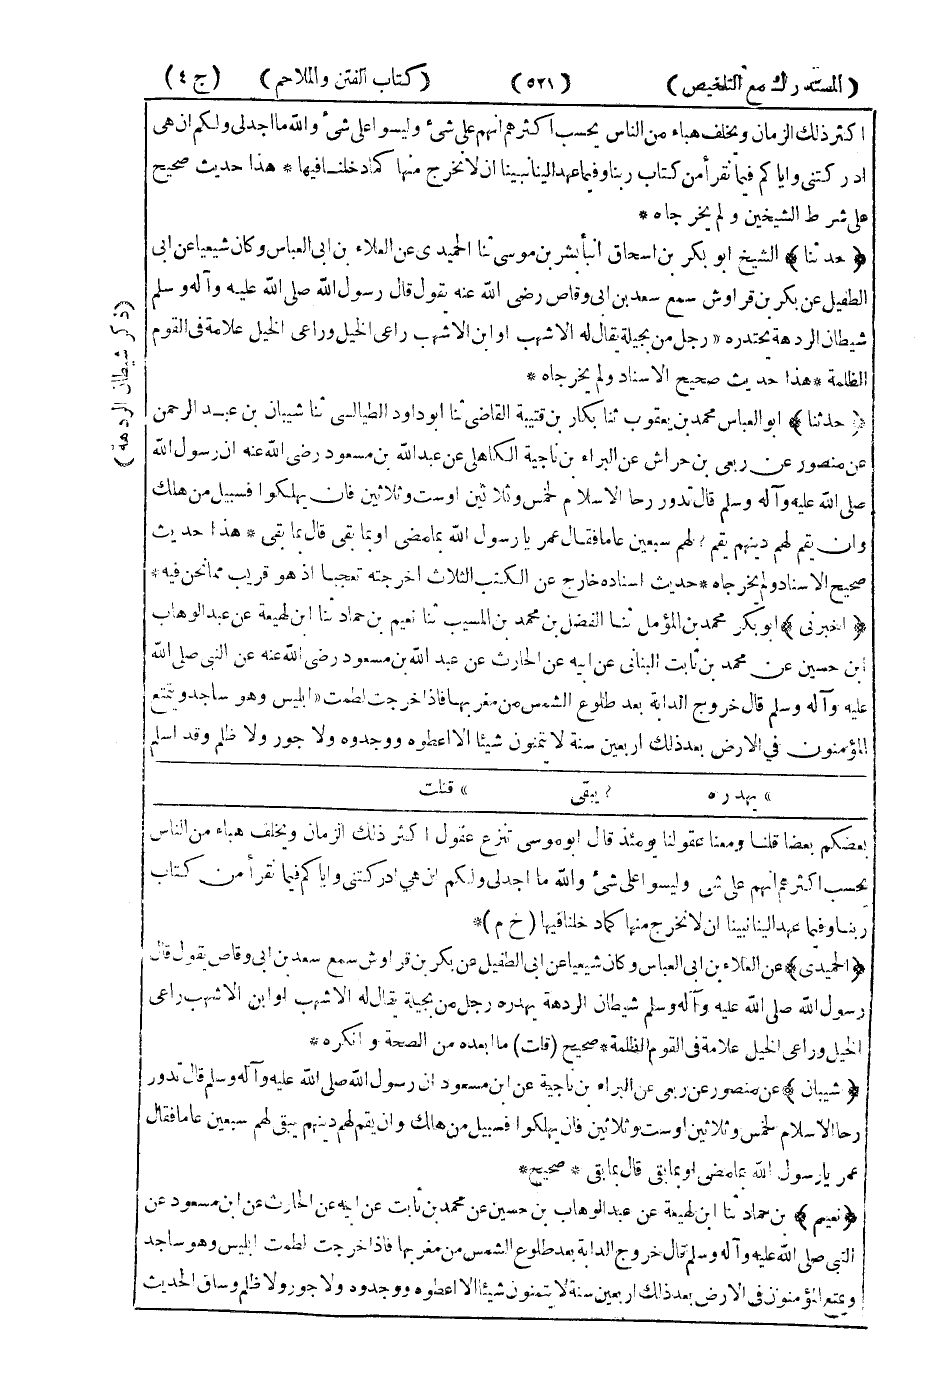 (المستدرك مع التلخيص) (٥٢١) (كتاب الفتن والملاحم) (ج ٤)
اكثر ذلك الزمان ويخلف هباء من الناس يحسب اكثرهم انهم على شىء وليسوا على شىء والله ما اجد لى ولكم ان هى
ادركتنى واياكم فيما نقرأ من كتاب ربنا وفيما عهد الينا نبينا ان لا نخرج منها كما دخلنا فيها * هذا حديث صحيح
على شرط الشيخين ولم يخرجاه *
﴿حدثنا﴾ الشيخ ابو بكر بن اسحاق انبأ بشر بن موسى ثنا الحميدى عن العلاء بن ابى العباس وكان شيعيا عن ابى
الطفيل عن بكر بن قراوش سمع سعد بن ابى وقاص رضى الله عنه يقول قال رسول الله صلى الله عليه وآله وسلم
شيطان الردهة يحتدره « رجل من بجيلة يقال له الاشهب او ابن الاشهب راعى الخيل وراعى الخيل علامة فى القوم
الظلمة * هذا حديث صحيح الاسناد ولم يخرجاه *
﴿حدثنا﴾ ابو العباس محمد بن يعقوب ثنا بكار بن قتيبة القاضى ثنا ابو داود الطيالسى ثنا شيبان بن عبد الرحمن
عن منصور عن ربعى بن حراش عن البراء بن ناجية الكاهلى عن عبد الله بن مسعود رضى الله عنه ان رسول الله
صلى الله عليه وآله وسلم قال تدور رحا الاسلام لخمس وثلاثين او ست وثلاثين فان يهلكوا فسبيل من هلك
وان يقم لهم دينهم يقم ? لهم سبعين عاما فقال عمر يا رسول الله بما مضى او بما بقى قال بما بقى * هذا حديث
صحيح الاسناد ولم يخرجاه * حديث اسناده خارج عن الكتب الثلاث اخرجته تعجبا اذ هو قريب مما نحن فيه *
﴿اخبرنى﴾ ابو بكر محمد بن المؤمل ثنا الفضل بن محمد بن المسيب ثنا نعيم بن حماد ثنا ابن لهيعة عن عبد الوهاب
ابن حسين عن محمد بن ثابت البنانى عن ابيه عن الحارث عن عبد الله بن مسعود رضى الله عنه عن النبى صلى الله
عليه وآله وسلم قال خروج الدابة بعد طلوع الشمس من مغربها فاذا خرجت لطمت « ابليس وهو ساجد ويتمتع
المؤمنون فى الارض بعد ذلك اربعين سنة لا يتمنون شيئا الا اعطوه ووجدوه ولا جور ولا ظلم وقد اسلم
(ذكر شيطان الردهة)
« يهدره ? يبقى « قتلت
بعضكم بعضا قلنا ومعنا عقولنا يومئذ قال ابو موسى تنزع عقول اكثر ذلك الزمان ويخلف هباء من الناس
يحسب اكثرهم انهم على شى وليسوا على شىء والله ما اجد لى ولكم ان هى ادركتنى واياكم فيما نقرأ من كتاب
ربنا وفيما عهد الينا نبينا ان لا نخرج منها كما دخلنا فيها (خ م)*
﴿الحميدى﴾ عن العلاء بن ابى العباس وكان شيعيا عن ابى الطفيل عن بكر بن قراوش سمع سعد بن ابى وقاص يقول قال
رسول الله صلى الله عليه وآله وسلم شيطان الردهة يهدره رجل من بجيلة يقال له الاشهب او ابن الاشهب راعى
الخيل وراعى الخيل علامة فى القوم الظلمة * صحيح (قلت) ما ابعده من الصحة و انكره *
﴿شيبان﴾ عن منصور عن ربعى عن البراء بن ناجية عن ابن مسعود ان رسول الله صلى الله عليه وآله وسلم قال تدور
رحا الاسلام لخمس وثلاثين او ست وثلاثين فان يهلكوا فسبيل من هالك وان يقم لهم دينهم يبقى لهم سبعين عاما فقال
عمر يا رسول الله بما مضى او بما بقى قال بما بقى * صحيح*
﴿نعيم﴾ بن حماد ثنا ابن لهيعة عن عبد الوهاب بن حسين عن محمد بن ثابت عن ابيه عن الحارث عن ابن مسعود عن
النبى صلى الله عليه وآله وسلم قال خروج الدابة بعد طلوع الشمس من مغربها فاذا خرجت لطمت ابليس وهو ساجد
ويمتع المؤمنون فى الارض بعد ذلك اربعين سنة لا يتمنون شيئا الا اعطوه ووجدوه ولا جور ولا ظلم وساق الحديث